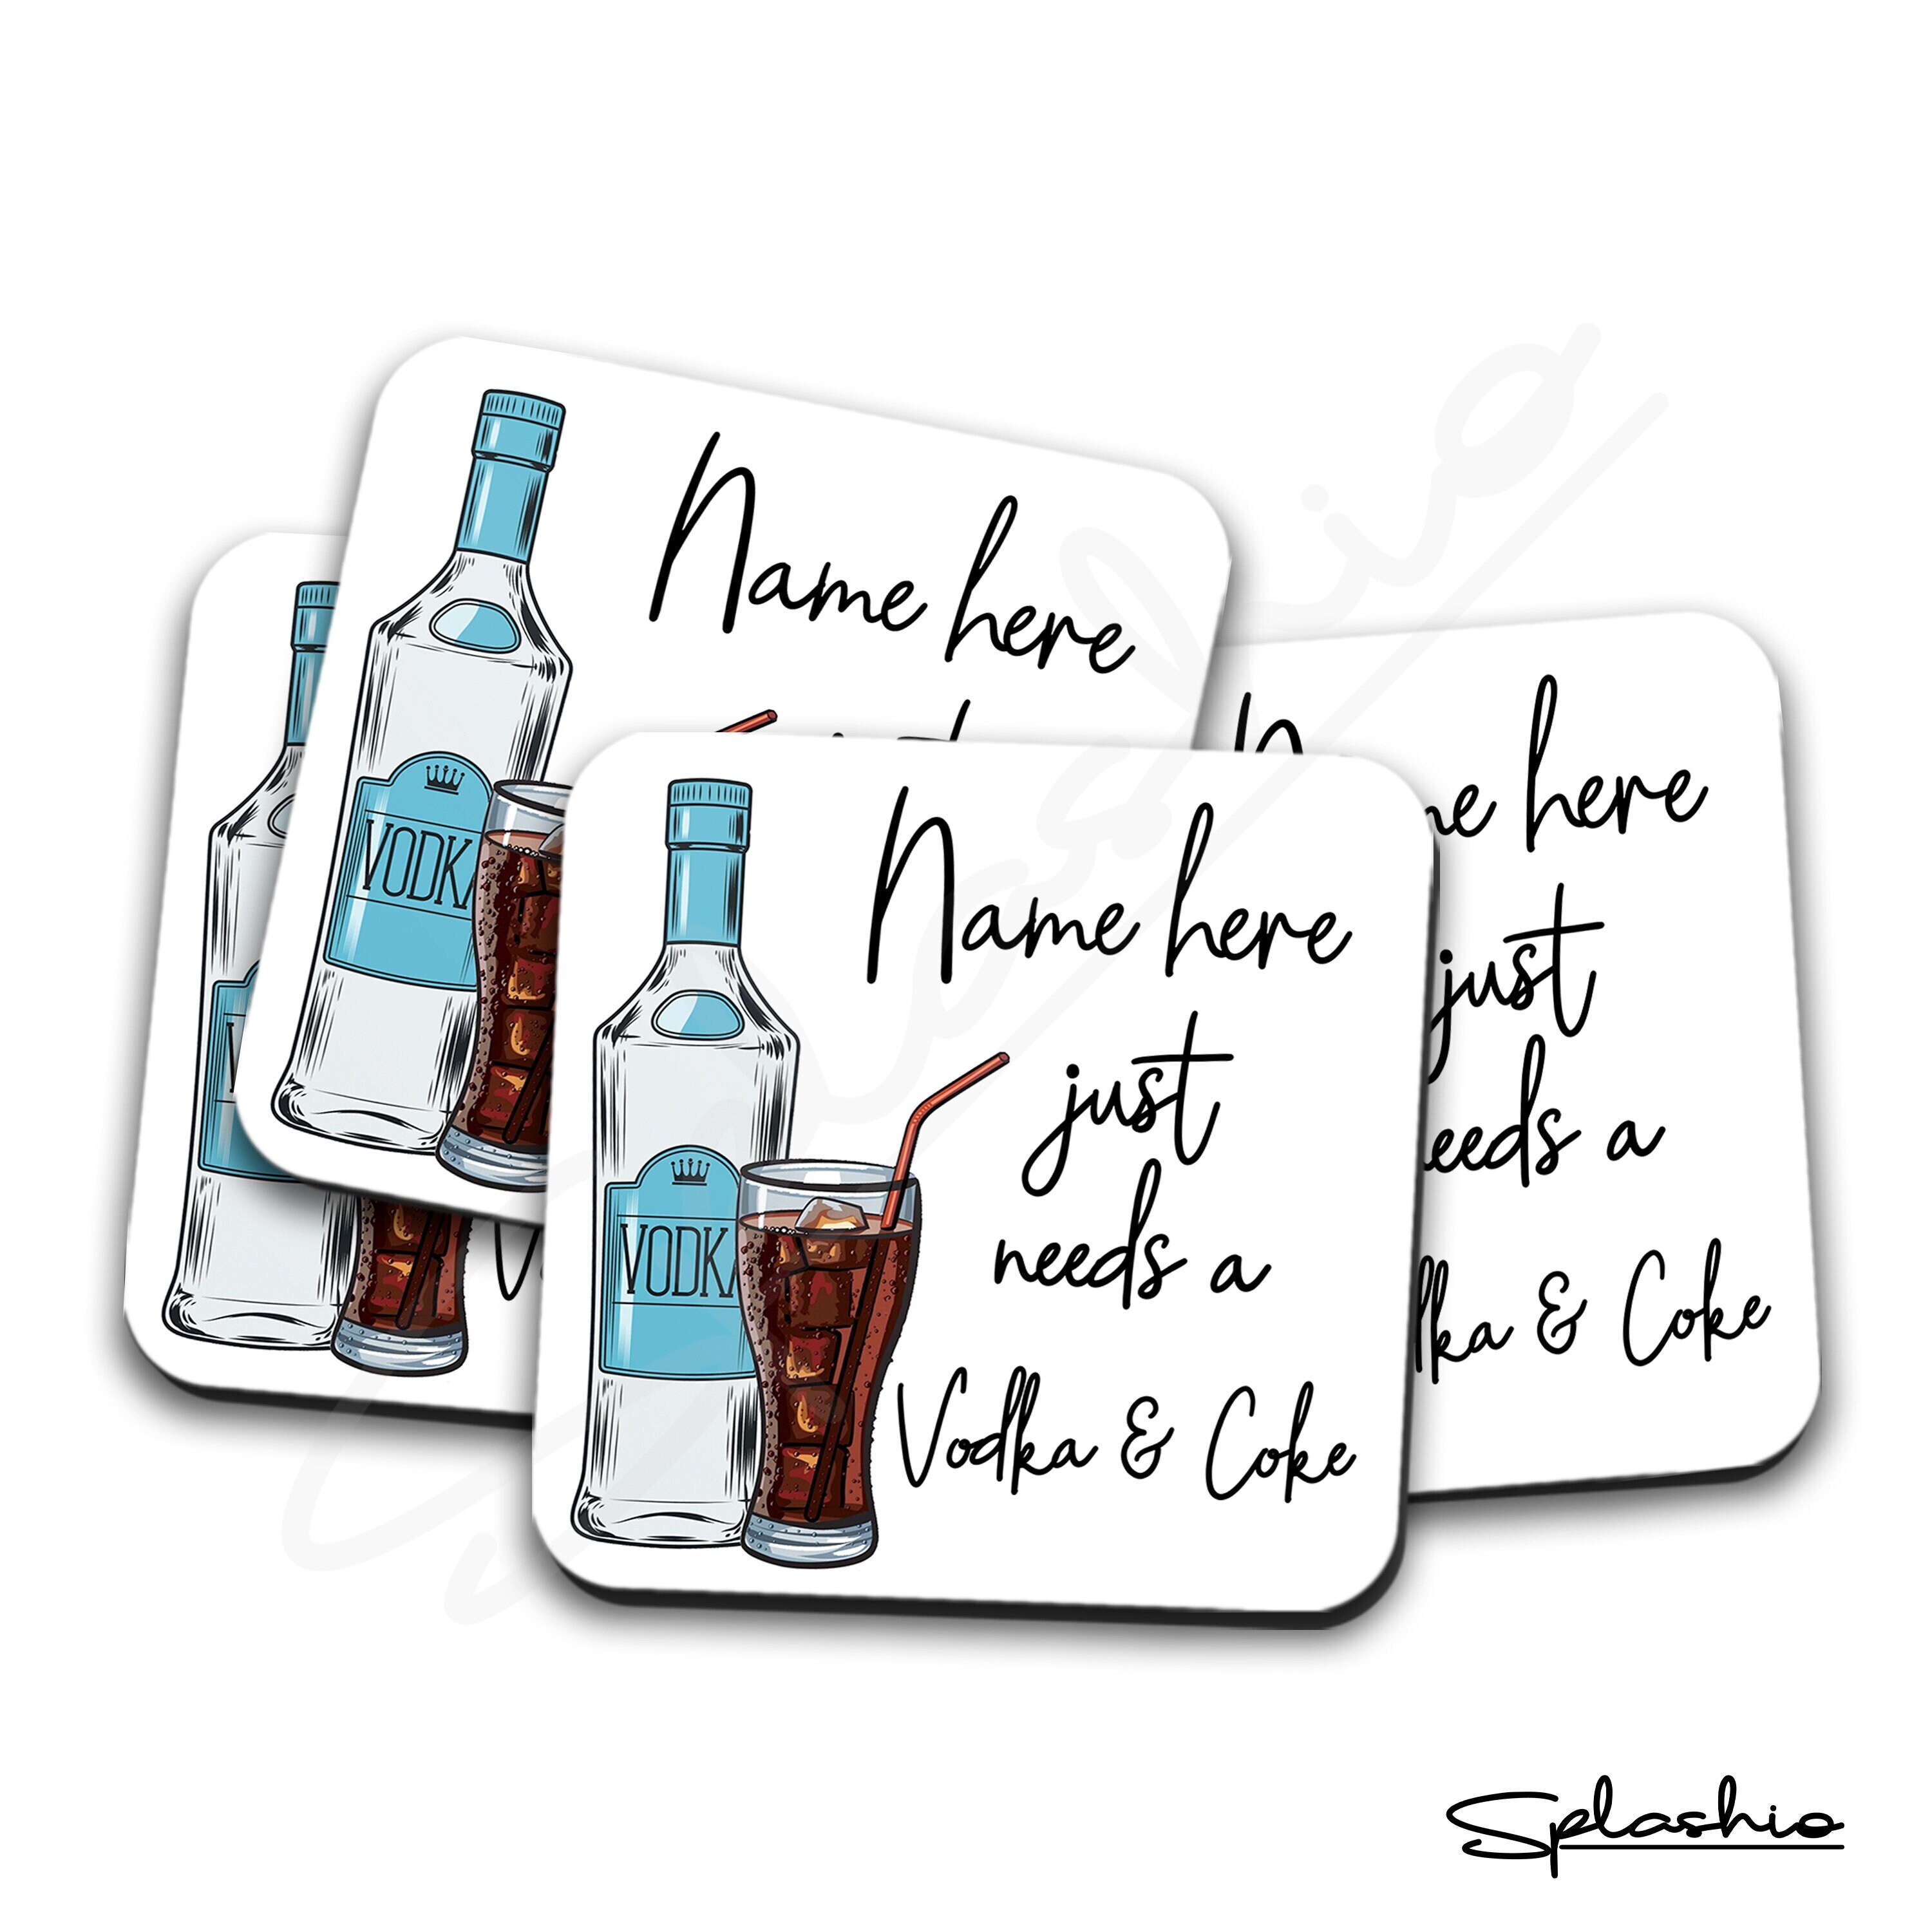 Name here
VODKA
Name here
just
needs a
Vodka & Coke
VODK
here
just
needs a
Vodka & Coke
Splashio
Splashio